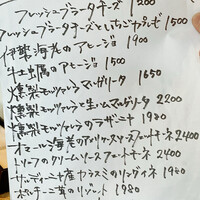 フレッシュブラータチーズ 1200
フレッシュブラータチーズといちごカプレーゼ 1500
伊勢海老のアヒージョ 1900
牡蠣のアヒージョ 1500
燻製モッツァレラマルゲリータ 1650
燻製モッツァレラと生ハムマルゲリータ 2200
燻製モッツァレラのラザニア 1980
オマール海老のアメリケーヌソースフェットチーネ 2400
トリュフのクリームソースフェットチーネ 2400
サルディーニャ産カラスミのリングイネ 1980
ポルチーニ茸のリゾット 1980